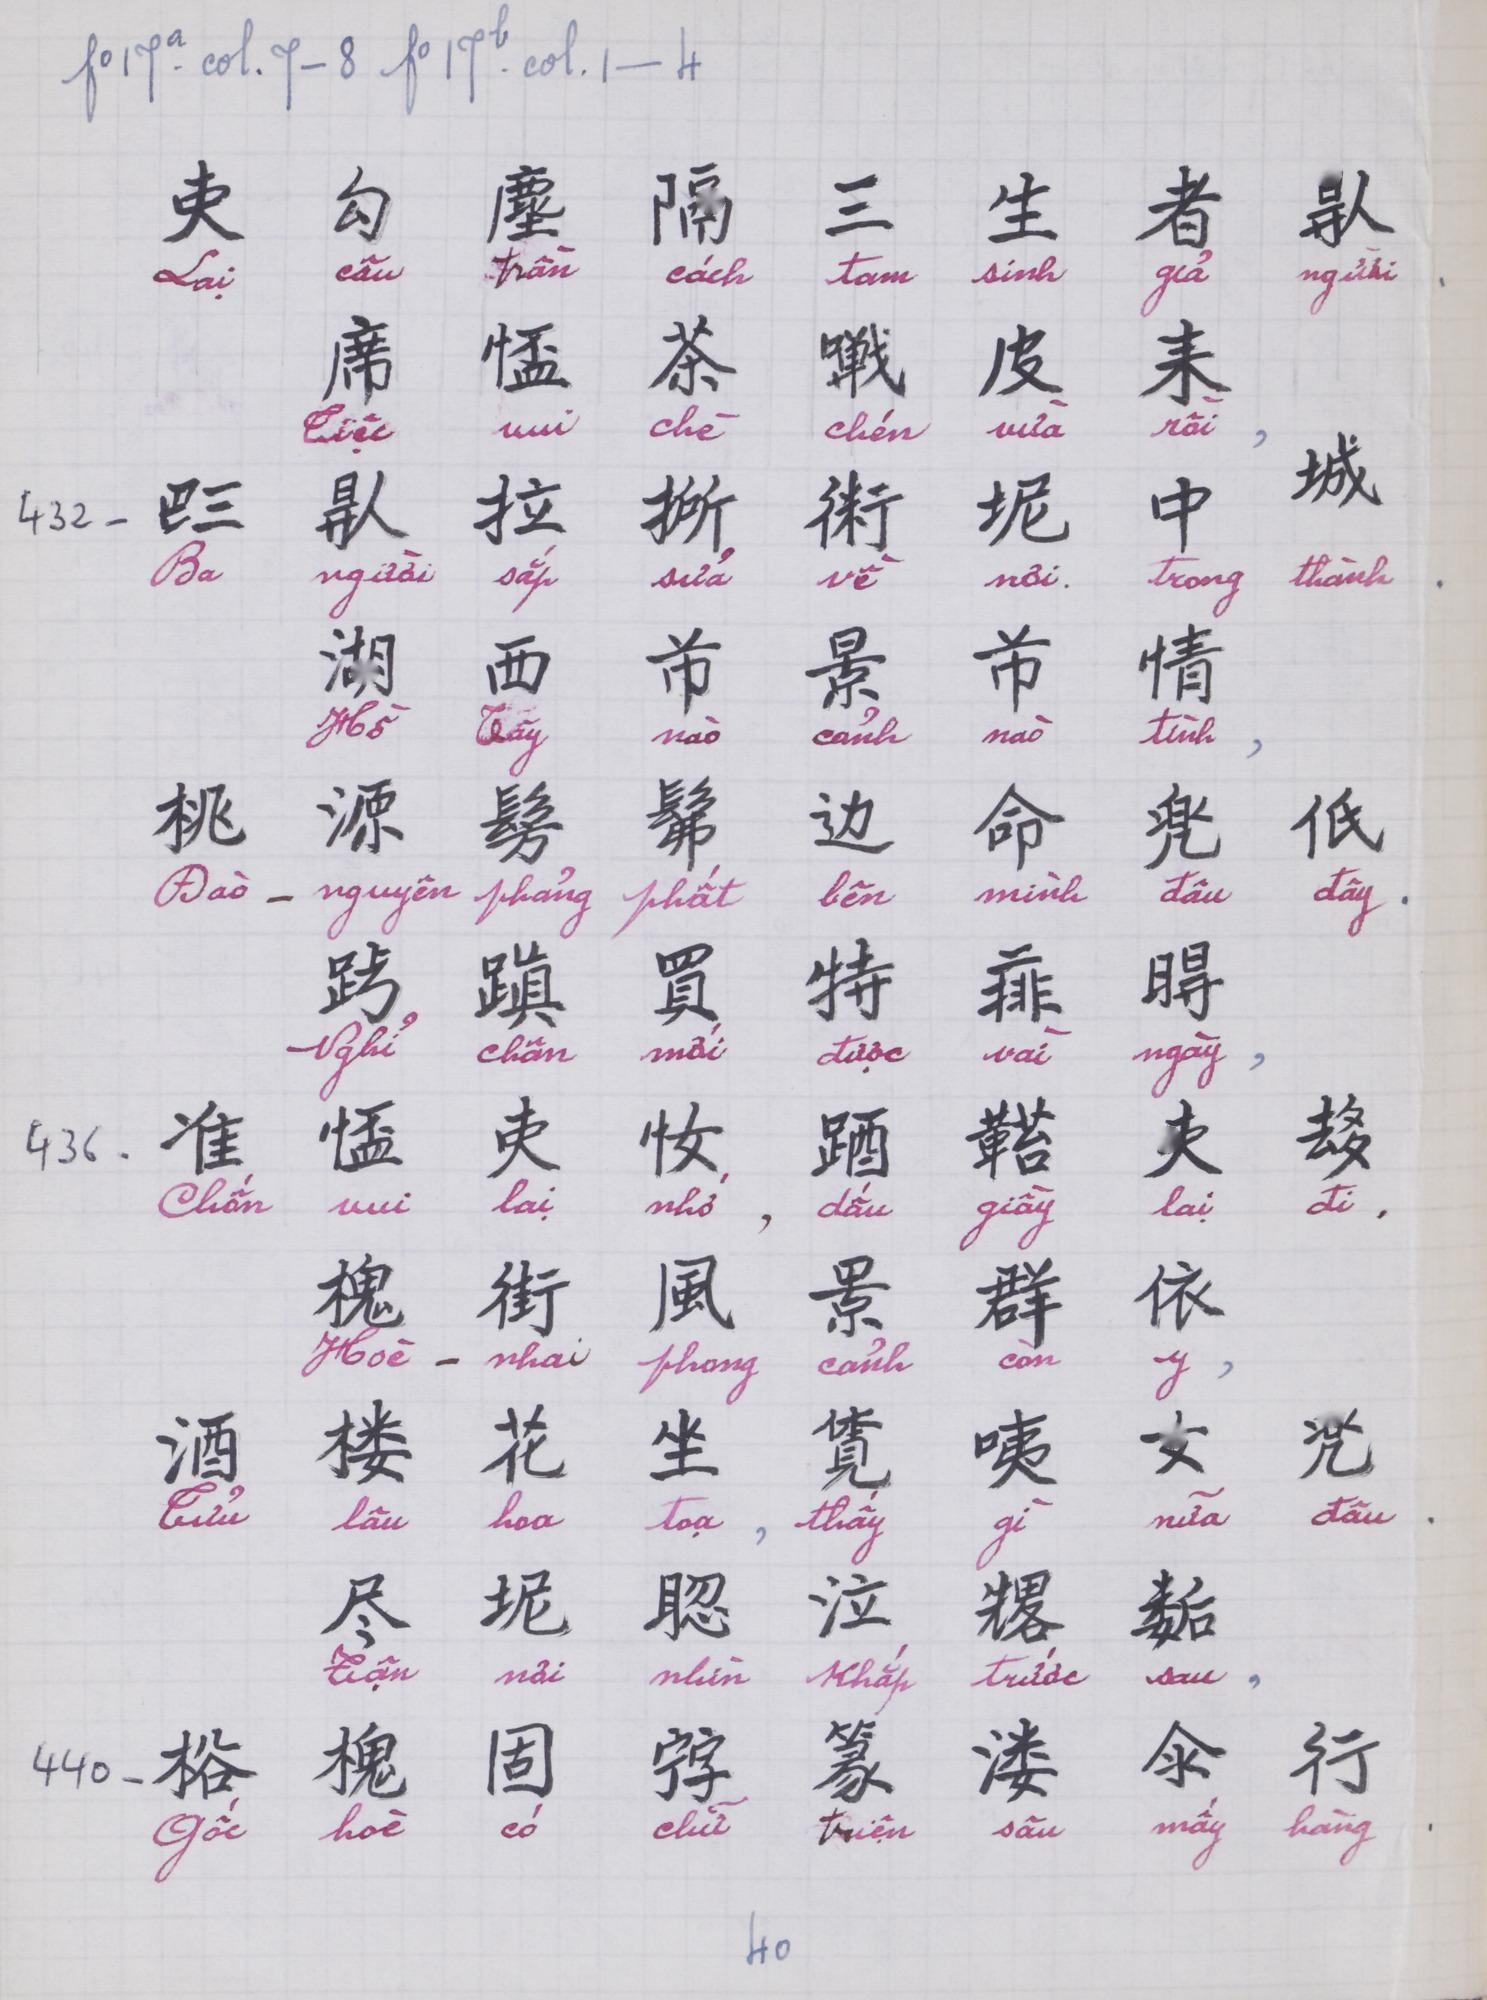 fº 17ª. col. 7–8 fº 17ᵇ. col. 1—4
吏 勾 塵 隔 三 生 者 𠊛
Lại câu trần cách tam sinh giả người.
席 㤝 茶 𡃹 皮 耒
Tiệc vui chè chén vừa rồi,
432 – 𠀧 𠊛 拉 𢯢 術 坭 中 城
Ba người sắp sửa về nơi trong thành.
湖 西 芇 景 芇 情
Hồ Tây nào cảnh nào tình,
桃 源 髣 髴 边 命 兜 低
Đào – nguyên phảng phất bên mình đâu đây.
蹎 買 特 𣈜
Nghỉ chân mới được vài ngày,
436. 准 㤝 吏 𢖵 吏 𠫾
Chốn vui lại nhớ, dấu giầy lại đi.
槐 街 風 景 群 依
Hoè – nhai phong cảnh còn y,
酒 楼 花 坐 覓 咦 女
Tửu lâu hoa toạ, thấy gì nữa đâu.
尽 坭 泣
Tận nơi nhìn khắp trước sau,
440 – 槐 固 篆 溇 行
Gốc hoè có chữ triện sâu mấy hàng.
40